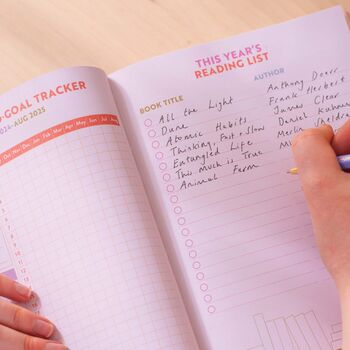 -GOAL TRACKER
024-AUG 2025
Oct Nov Dec Jan Feb Mar Apr May Jun Jul Aug
THIS YEAR'S
READING LIST
BOOK TITLE AUTHOR
All the Light Anthony Doerr
Dune Frank Herbert
Atomic Habits James Clear
Thinking, Fast + Slow Daniel Kahne
Entangled Life Merlin Sheldra
This Much is True Mi
Animal Farm